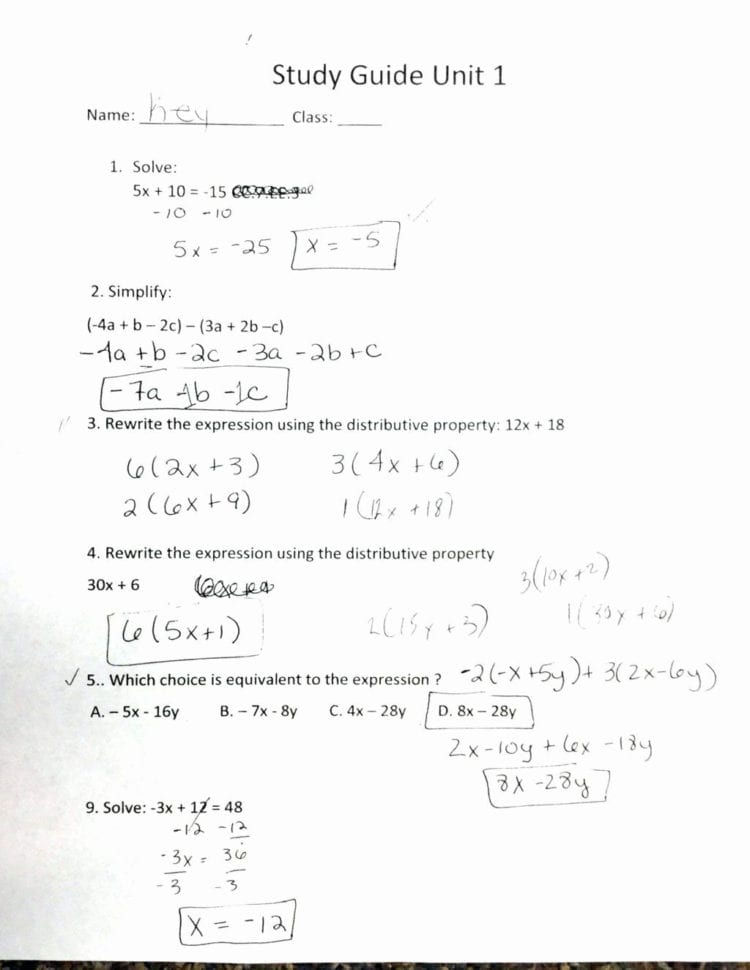 Study Guide Unit 1
Name: hey Class:
1. Solve:
5x + 10 = -15
-10 -10
5x = -25 x = -5
2. Simplify:
(-4a + b – 2c) – (3a + 2b –c)
-4a +b -2c -3a -2b +c
-7a -1b -1c
3. Rewrite the expression using the distributive property: 12x + 18
6(2x +3) 3(4x +6)
2(6x +9) 1(12x +18)
4. Rewrite the expression using the distributive property
30x + 6 3(10x +2)
6(5x+1) 2(15x +3) 1(30x +6)
✓ 5.. Which choice is equivalent to the expression ? -2(-x +5y)+ 3(2x-6y)
A. – 5x - 16y B. – 7x - 8y C. 4x – 28y D. 8x – 28y
2x-10y + 6x -18y
8x -28y
9. Solve: -3x + 12 = 48
-12 -12
-3x = 36
-3 -3
x = -12